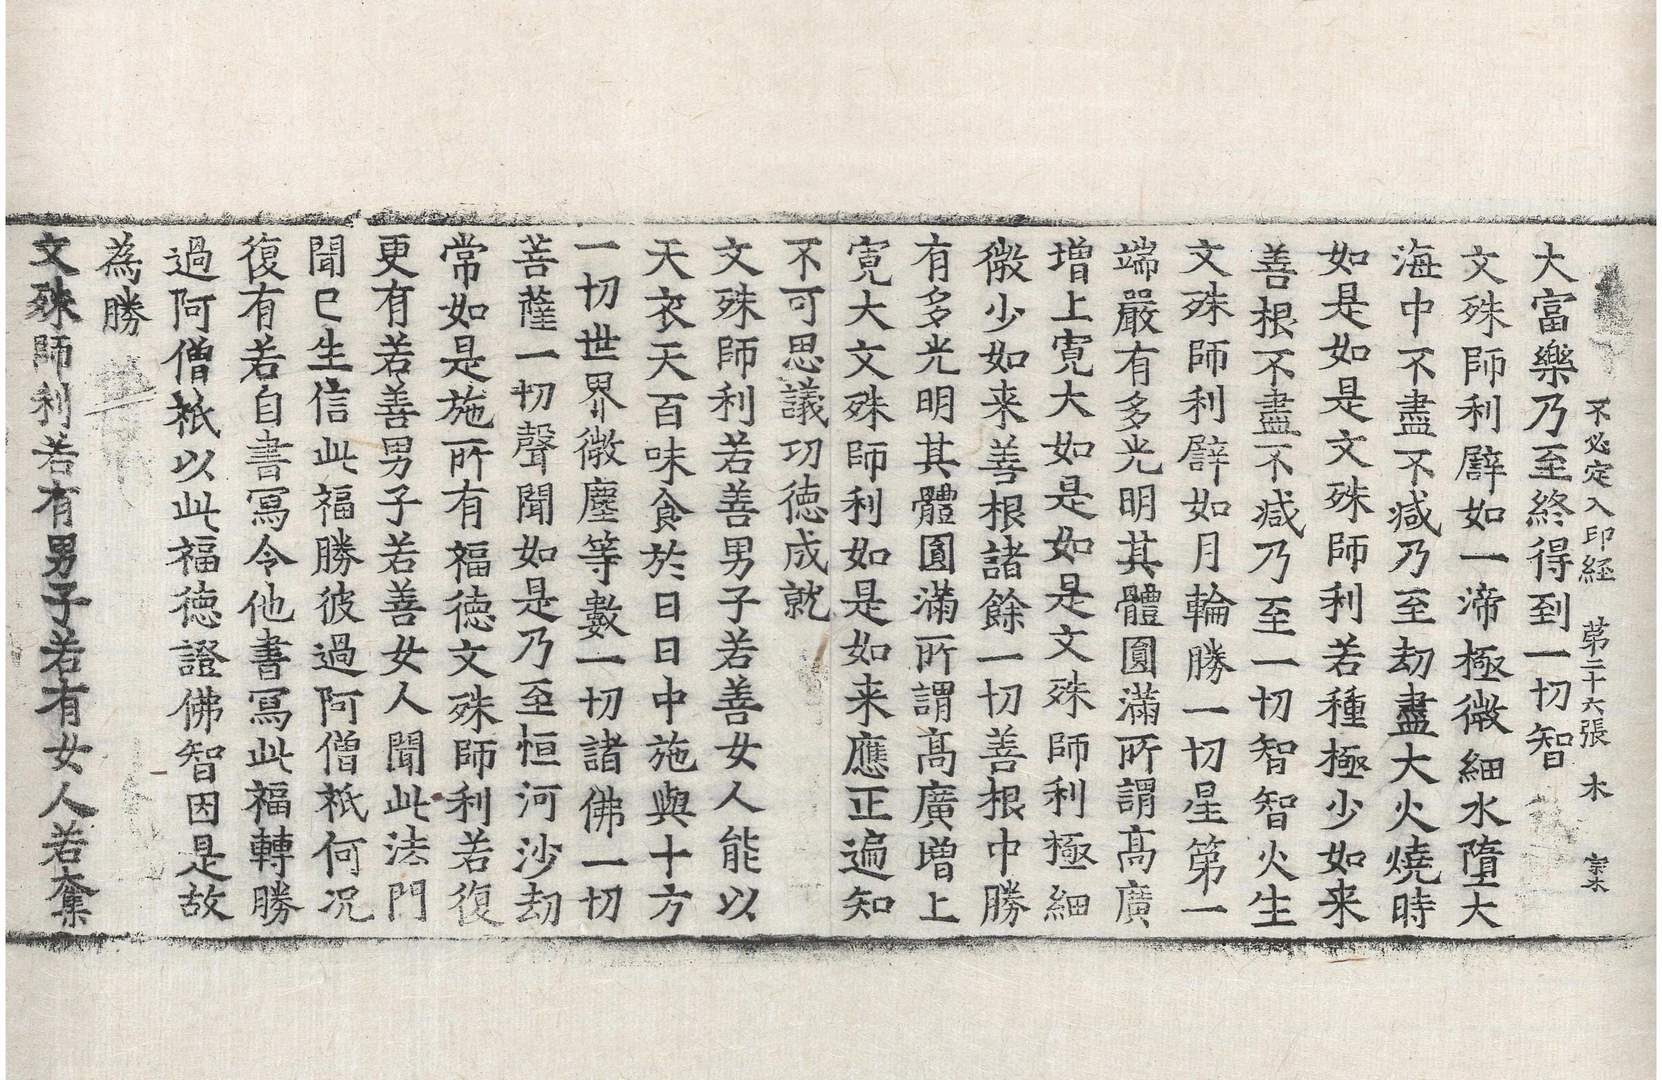 不必定入印經 第二十六張 木
大富樂乃至終得到一切智
文殊師利譬如一渧極微細水墮大
海中不盡不减乃至劫盡大火燒時
如是如是文殊師利若種極少如来
善根不盡不减乃至一切智智火生
文殊師利譬如月輪勝一切星第一
端嚴有多光明其體圓滿所謂髙廣
增上寛大如是如是文殊師利極細
微少如来善根諸餘一切善根中勝
有多光明其體圓滿所謂髙廣增上
寛大文殊師利如是如来應正遍知
不可思議功德成就
文殊師利若善男子若善女人能以
天衣天百味食於日日中施與十方
一切世界微塵等數一切諸佛一切
菩薩一切聲聞如是乃至恒河沙劫
常如是施所有福德文殊師利若復
更有若善男子若善女人聞此法門
聞已生信此福勝彼過阿僧祇何况
復有若自書寫令他書寫此福轉勝
過阿僧祇以此福德證佛智因是故
為勝
文殊師利若有男子若有女人若奪